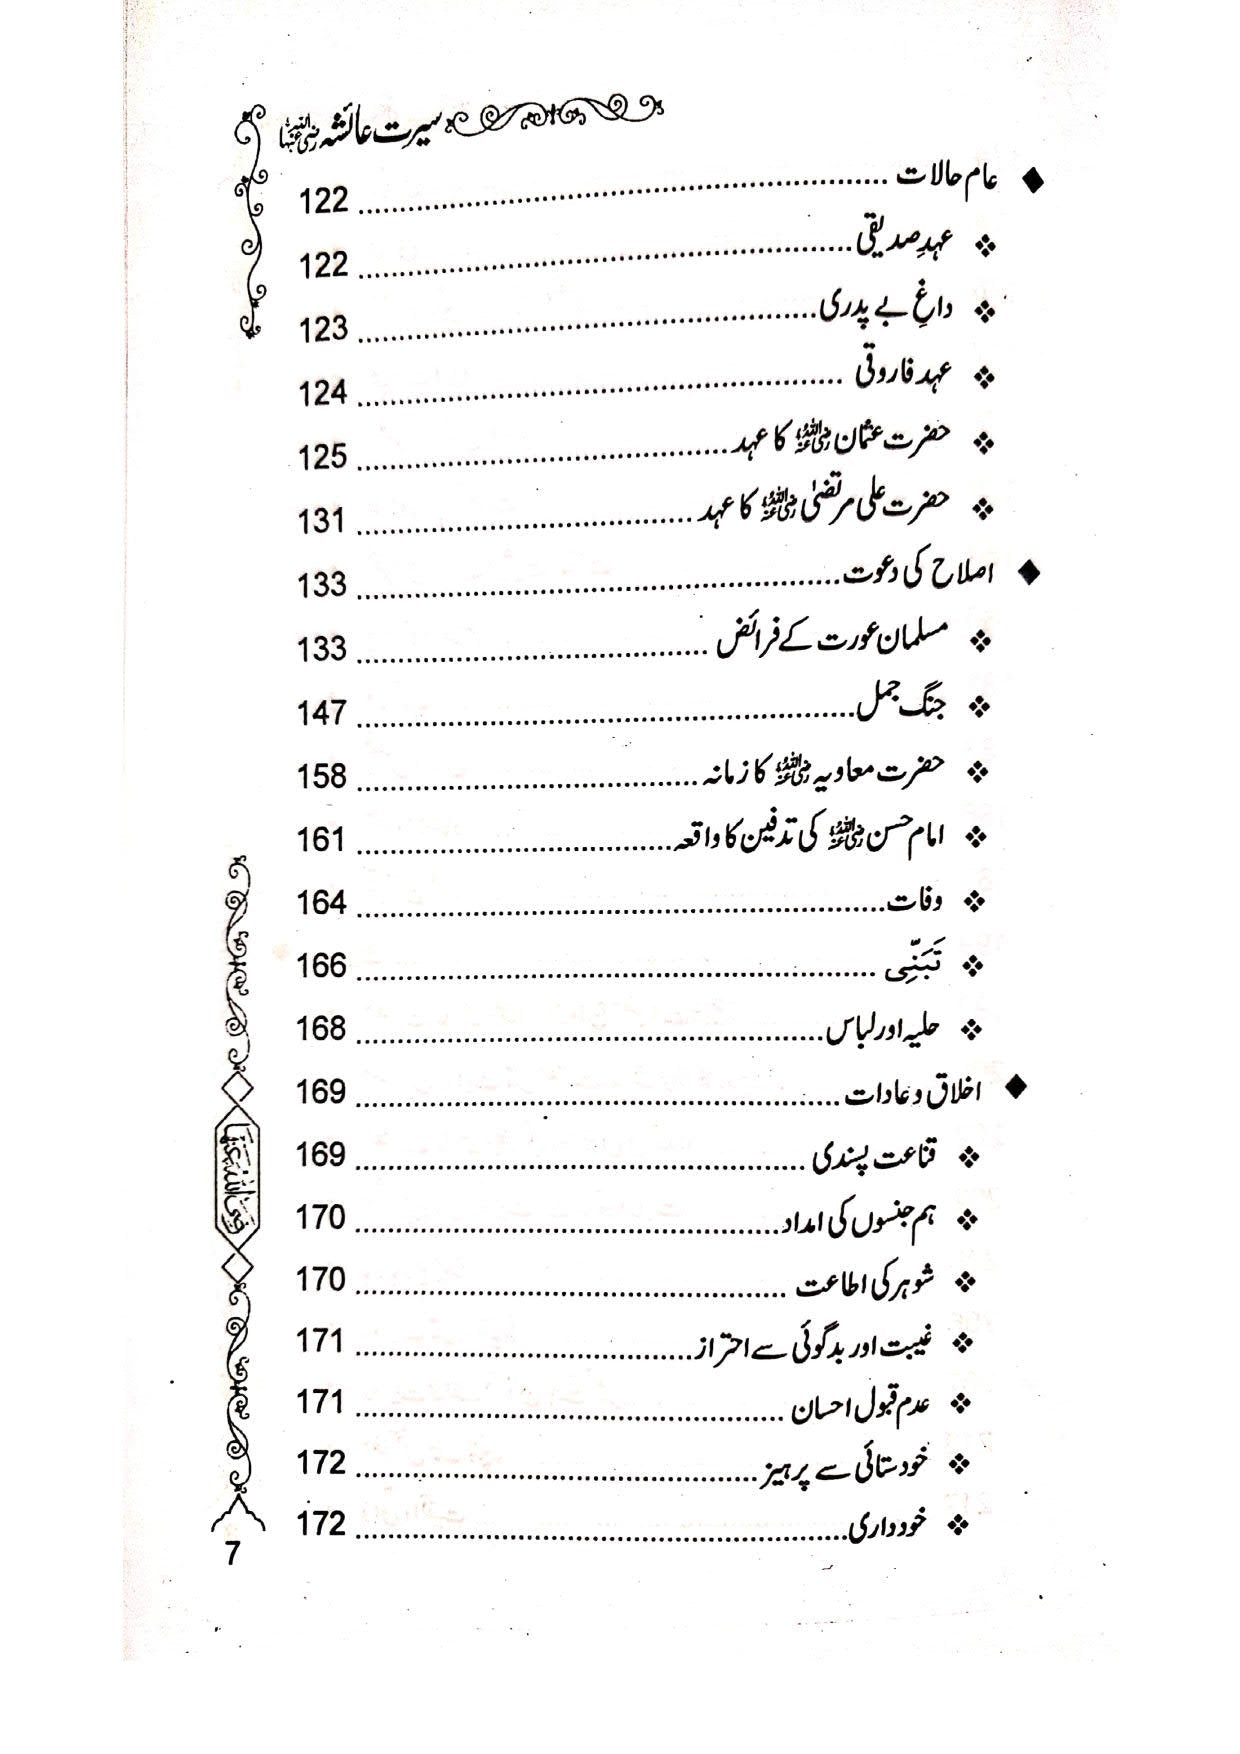 سیرت عائشہ رضی اللہ عنہا
عام حالات 122
عہدِ صدیقی 122
داغِ بے پدری 123
عہد فاروقی 124
حضرت عثمان رضی اللہ عنہ کا عہد 125
حضرت علی مرتضیٰ رضی اللہ عنہ کا عہد 131
اصلاح کی دعوت 133
مسلمان عورت کے فرائض 133
جنگ جمل 147
حضرت معاویہ رضی اللہ عنہ کا زمانہ 158
امام حسن رضی اللہ عنہ کی تدفین کا واقعہ 161
وفات 164
تَبَنّیِ 166
حلیہ اور لباس 168
اخلاق و عادات 169
قناعت پسندی 169
ہم جنسوں کی امداد 170
شوہر کی اطاعت 170
غیبت اور بدگوئی سے احتراز 171
عدم قبول احسان 171
خودستائی سے پرہیز 172
خودداری 172
رضی اللہ عنہا
7